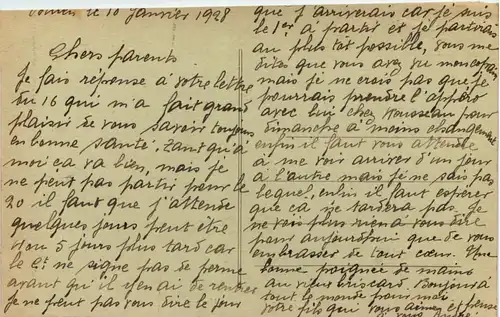 le 18 Janvier 1928
Chers parents
Je fais réponse à votre lettre
du 16 qui m'a fait grand
plaisir de vous savoir toujours
en bonne santé. Tant qu'à
moi ça va bien, mais je
ne peut pas partir pour le
20 il faut que j'attende
quelques jours peut être
4 ou 5 jours plus tard car
le Ct ne signe pas de perme
avant qu'il y en ai de rentrer
je ne peut pas vous dire le jour
que j'arriverais car je suis
le 1er à partir et je partirais
au plus tôt possible, vous me
dites que vous avez vu mon copain
mais je ne crois pas que je
pourrais prendre l'apéro
avec lui chez Rousseau pour
dimanche à moins changement
enfin il faut vous attendre
à me voir arriver d'un jour
à l'autre mais je ne sais pas
lequel, enfin il faut espérer
que ça ne tardera pas. Je
ne vois plus rien à vous dire
pour aujourd'hui que de vous
embrasser de tout cœur. Une
bonne poignée de mains
au vieux briscard. Bonjour à
tout le monde pour moi
votre fils qui vous aime et pense
à vous